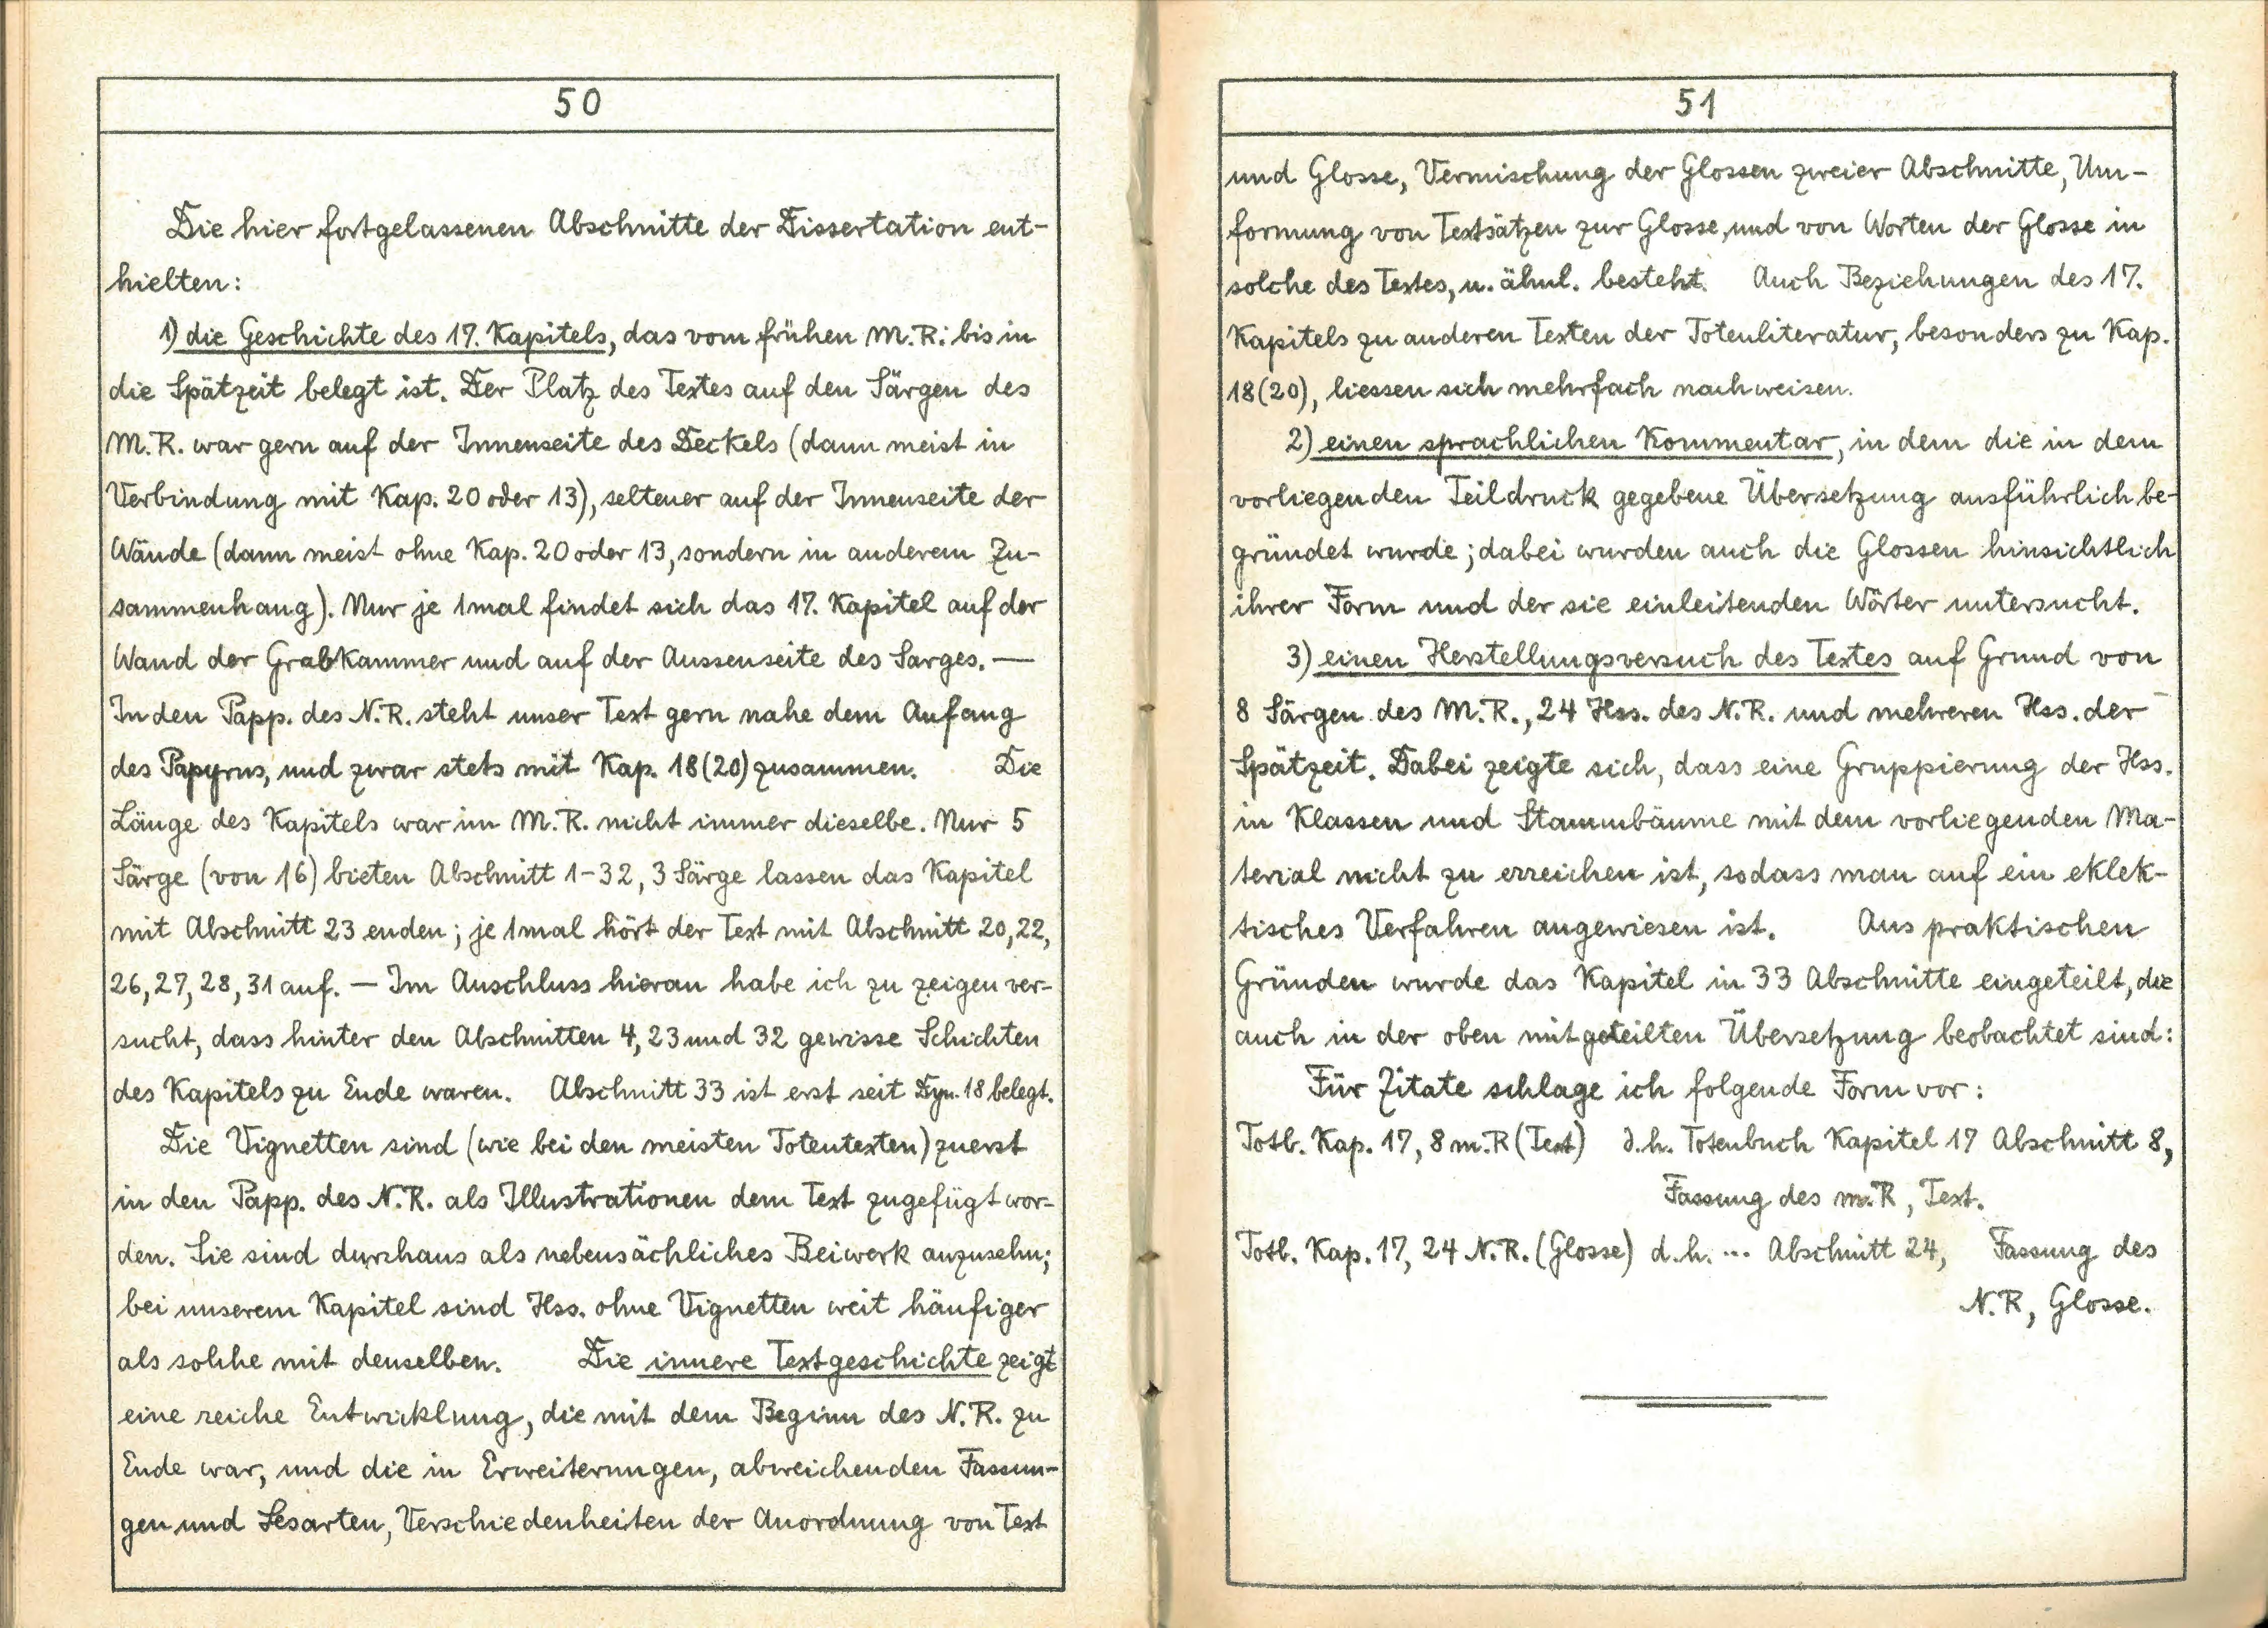 50
Die hier fortgelassenen Abschnitte der Dissertation ent-
hielten:
1) die Geschichte des 17. Kapitels, das vom frühen M.R. bis in
die Spätzeit belegt ist. Der Platz des Textes auf den Särgen des
M.R. war gern auf der Innenseite des Deckels (dann meist in
Verbindung mit Kap. 20 oder 13), seltener auf der Innenseite der
Wände (dann meist ohne Kap. 20 oder 13, sondern in anderem Zu-
sammenhang). Nur je 1mal findet sich das 17. Kapitel auf der
Wand der Grabkammer und auf der Aussenseite des Sarges. —
In den Papp. des N.R. steht unser Text gern nahe dem Anfang
des Papyrus, und zwar stets mit Kap. 18(20) zusammen. Die
Länge des Kapitels war im M.R. nicht immer dieselbe. Nur 5
Särge (von 16) bieten Abschnitt 1-32, 3 Särge lassen das Kapitel
mit Abschnitt 23 enden; je 1mal hört der Text mit Abschnitt 20, 22,
26, 27, 28, 31 auf. — Im Anschluss hieran habe ich zu zeigen ver-
sucht, dass hinter den Abschnitten 4, 23 und 32 gewisse Schichten
des Kapitels zu Ende waren. Abschnitt 33 ist erst seit Dyn. 18 belegt.
Die Vignetten sind (wie bei den meisten Totentexten) zuerst
in den Papp. des N.R. als Illustrationen dem Text zugefügt wor-
den. Sie sind durchaus als nebensächliches Beiwerk anzusehn;
bei unserem Kapitel sind Hss. ohne Vignetten weit häufiger
als solche mit denselben. Die innere Textgeschichte zeigt
eine reiche Entwicklung, die mit dem Beginn des N.R. zu
Ende war, und die in Erweiterungen, abweichenden Fassun-
gen und Lesarten, Verschiedenheiten der Anordnung von Text
51
und Glosse, Vermischung der Glossen zweier Abschnitte, Um-
formung von Textsätzen zur Glosse, und von Worten der Glosse in
solche des Textes, u. ähnl. besteht. Auch Beziehungen des 17.
Kapitels zu anderen Texten der Totenliteratur, besonders zu Kap.
18(20), liessen sich mehrfach nachweisen.
2) einen sprachlichen Kommentar, in dem die in dem
vorliegenden Teildruck gegebene Übersetzung ausführlich be-
gründet wurde; dabei wurden auch die Glossen hinsichtlich
ihrer Form und der sie einleitenden Wörter untersucht.
3) einen Herstellungsversuch des Textes auf Grund von
8 Särgen des M.R., 24 Hss. des N.R. und mehreren Hss. der
Spätzeit. Dabei zeigte sich, dass eine Gruppierung der Hss.
in Klassen und Stammbäume mit dem vorliegenden Ma-
terial nicht zu erreichen ist, sodass man auf ein eklek-
tisches Verfahren angewiesen ist. Aus praktischen
Gründen wurde das Kapitel in 33 Abschnitte eingeteilt, die
auch in der oben mitgeteilten Übersetzung beobachtet sind:
Für Zitate schlage ich folgende Form vor:
Totb. Kap. 17, 8 m.R (Text) d.h. Totenbuch Kapitel 17 Abschnitt 8,
Fassung des m.R, Text.
Totb. Kap. 17, 24 N.R. (Glosse) d.h. ... Abschnitt 24, Fassung des
N.R, Glosse.